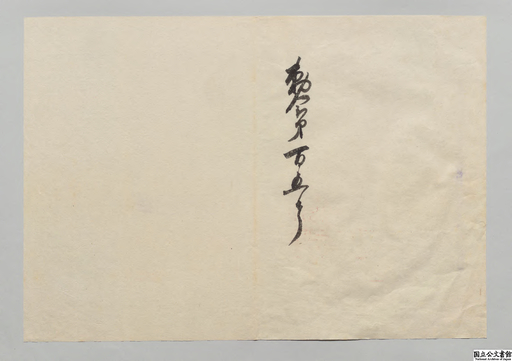 勅令第百五号
国立公文書館
National Archives of Japan